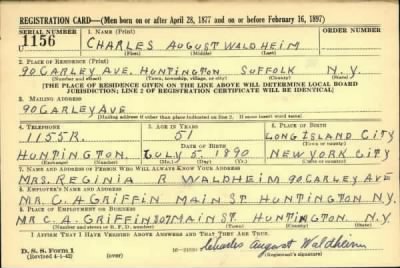 REGISTRATION CARD—(Men born on or after April 28, 1877 and on or before February 16, 1897)
SERIAL NUMBER 1. NAME (Print)
U 1156 CHARLES AUGUST WALDHEIM
(First) (Middle) (Last)
2. PLACE OF RESIDENCE (Print)
90 CARLEY AVE. HUNTINGTON SUFFOLK N.Y.
(Number and street) (Town, township, village, or city) (County) (State)
[THE PLACE OF RESIDENCE GIVEN ON THE LINE ABOVE WILL DETERMINE LOCAL BOARD
JURISDICTION; LINE 2 OF REGISTRATION CERTIFICATE WILL BE IDENTICAL]
3. MAILING ADDRESS
90 CARLEY AVE
[Mailing address if other than place indicated on line 2. If same insert word same]
4. TELEPHONE 5. AGE IN YEARS 6. PLACE OF BIRTH
1155R. 51 LONG ISLAND CITY
DATE OF BIRTH
HUNTINGTON JULY 5 1890 NEW YORK CITY
7. NAME AND ADDRESS OF PERSON WHO WILL ALWAYS KNOW YOUR ADDRESS
MRS. REGINIA R WALDHEIM 90 CARLEY AVE
8. EMPLOYER'S NAME AND ADDRESS
MR. C. A GRIFFIN MAIN ST HUNTINGTON N.Y.
9. PLACE OF EMPLOYMENT OR BUSINESS
MR. C. A. GRIFFIN MAIN ST. HUNTINGTON N.Y.
(Number and street or R. F. D. number) (Town) (County) (State)
I AFFIRM THAT I HAVE VERIFIED ABOVE ANSWERS AND THAT THEY ARE TRUE.
D. S. S. Form 1
(Revised 4-1-42) (over) Charles August Waldheim
(Registrant's signature)